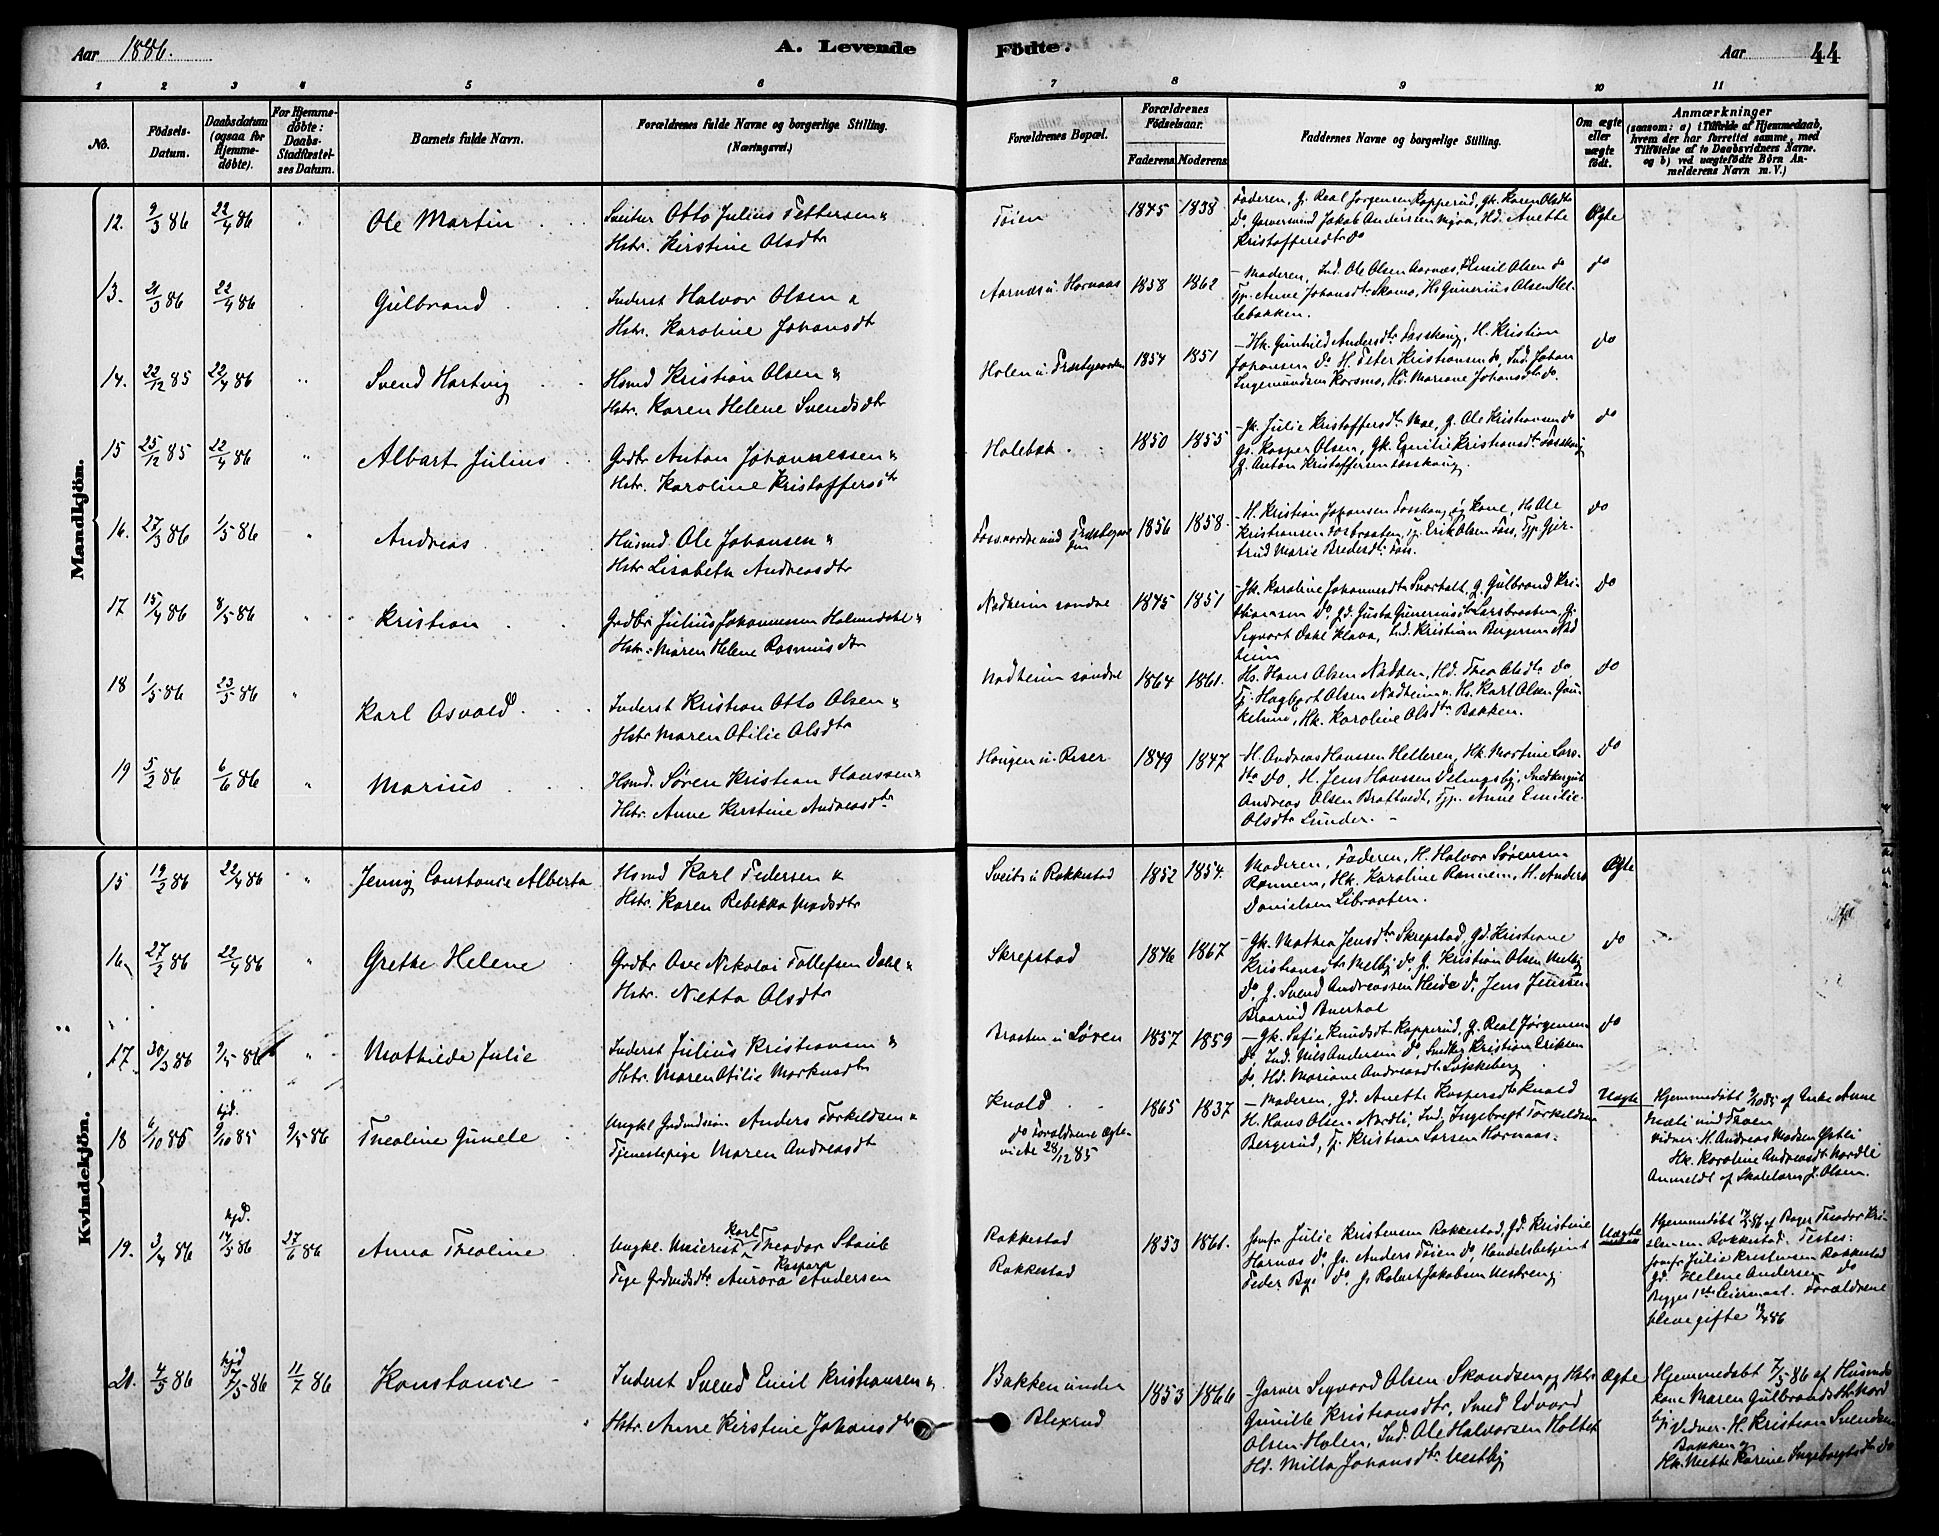 Aar 1886.
A. Levende Födte.
Aar 44
1 2 3 4 5 6 7 8 9 10 11
No.
Födsels-Datum.
Daabsdatum (ogsaa for Hjemme-döbte).
For Hjemme-döbte: Daabs-Stadfæstel-ses Datum.
Barnets fulde Navn.
Forældrenes fulde Navne og borgerlige Stilling. (Næringsvei.)
Forældrenes Bopæl.
Forældrenes Födselsaar.
Faderens Moderens
Faddernes Navne og borgerlige Stilling.
Om ægte eller uægte födt.
Anmærkninger
(saasom: a) i Tilfælde af Hjemmedaab,
hvem der har forrettet samme, med
Tilföielse af to Daabsvidners Navne.
og b) ved uægtefödte Börn An-
melderens Navn m. V.)
Mandkjön.
12. 9/3 86 22/4 86 " Ole Martin
Otto Julius Pettersen "
Hstr. Kirstine Olsdtr
Töien 1845 1838
Faderen, G. Real Jörgensen Kopperud, Gk. Karen Olsdtr
Do, Garversvend Jakob Andersen Mysen, Hd. Anette
Kristoffersdtr Do
Ægte
13. 21/3 86 22/4 86 Gulbrand
Inderst Halvor Olsen &
Hstr. Karoline Johansdtr
Aarnæs u. Hornaas 1858 1862
– Moderen, Ind. Ole Olsen Aarnæs, Emil Olsen do
Tjp. Anne Johansdtr Skomo, Hs Gunerius Olsen Hel-
lebakken.
do
14. 22/12 85 22/4 86 " Svend Hartvig
Hsmd Kristian Olsen &
Hstr. Karen Helene Svendsdtr
Holen u. Præstegaarden 1854 1851
– Hk. Gunhild Andersdtr Fosskoug, H. Kristian
Johansen Do H. Peter Kristiansen do, Ind. Johan
Ingemundsen Korsmo, Hd. Mariane Johansdtr do.
do
15 25/12 85 22/4 86 " Albart Julius
Grdbr Anton Johannessen &
Hstr. Karoline Kristoffersdtr
Holebæk 1850 1855
– Gk. Julie Kristoffersdtr Moe, G. Ole Kristiansen do
Gs. Kasper Olsen, Gk. Emilie Kristiansdtr Fosskoug
G. Anton Kristoffersen Fosskoug.
do
16. 27/3 86 1/5 86 " Andreas
Husmd Ole Johansen &
Hstr Lisabeth Andreasdtr
Foss nordre und Præstegaarden 1856 1858
– H. Kristian Johansen Fosskoug og Kone, Hs Ole
Kristiansen Fosbraaten, Tj. Erik Olsen Foss, Tjp Gjer-
trud Marie Bredesdtr Foss.
do
17 15/4 86 8/5 86 " Kristian
Grdbr Julius Johannesen Holmsdahl &
Hstr. Maren Helene Rasmusdtr
Nadheim söndre 1845 1851
– Gk. Karoline Johannesdtr Svartalt, G. Gulbrand Kri-
stiansen Do, Gd. Gusta Guneriusdtr Larsbraaten, G.
Sigvart Dahl Klava, Ind. Kristian Bergersen Nad
heim
do
18 1/5 86 23/5 86 " Karl Osvald
Inderst Kristian Otto Olsen &
Hstr Maren Otilie Olsdtr
Nadheim söndre 1864 1861.
Hs. Hans Olsen Nadheim, Hd. Thea Olsdtr do
Tj. Hagbart Olsen Nadheim, Hs. Karl Olsen
Hk. Karoline Olsdtr Bakken.
do
19 5/2 86 6/6 86 " Marius
Hsmd. Sören Kristian Hanssen &
Hstr. Anne Kirstine Andreasdtr
Haugen u. Riser 1849 1847
– H. Andreas Hanssen Helleren, Hk. Martine Lars-
dtr Do, H. Jens Hanssen Delingsby, Snedkergut
Andreas Olsen Brattvedt, Tjp. Anne Emilie
Olsdtr Lunder. –
do
Kvindekjön.
15 19/2 86 22/4 86 " Jenny Constance Alberta
Hsmd Karl Pedersen &
Hstr. Karen Rebekka Madsdtr
Sveits u Rakkestad 1852 1854.
Moderen, Faderen, H. Halvor Sörensen
Rönnem, Hk. Karoline Rönnem, H. Anders
Danielsen Libraaten.
Ægte
16. 27/2 86 22/4 86 " Grethe Helene
Grdbr Ove Nikolai Tollefsen Dahl &
Hstr. Netta Olsdtr
Skrepstad 1846 1867
– Gk. Mathea Jensdtr Skrepstad, Gd. Kristiane
Kristiansdtr Melby Do, G. Kristian Olsen Melby
Do, G. Svend Andreassen Heide Do, Jens Jenssen
Braarud Buerhol
do
17. 30/3 86 9/5 86 " Mathilde Julie
Inderst Julius Kristiansen &
Hstr. Maren Otilie Markusdtr
Braaten u Löven 1857 1859
– Gk. Sofie Knudsdtr Kopperud, G. Real Jörgensen
Do, Ind. Nils Andersen Do, Snedker Kristian Eriksen
Do, Hd. Mariane Andreasdtr Lökkeberg
do
18 6/10 85 hjd. 9/10 85 9/5 86 Theoline Gunele
Ungkl Grdmdssön Anders Torkildsen &
Tjenestepige Maren Andreasdtr
Knold
do Forældrene Ægte-
viede 28/12 85
1865 1837
– Moderen, Gd. Anette Kaspersdtr Knold
H. Hans Olsen Nordli, Ind. Ingebregt Torkildsen
Bergerud, Tj. Kristian Larsen Hornaas.
Uægte
Hjemmedöbt 9/10 85 af Enke Anne
Mæli und Troen
Vidner: H. Andreas Madsen Ystli
Hk. Karoline Andreasdtr Nordli
Anmeldt af Skolelærer J. Olsen.
19. 3/4 86 hjd. 14/5 86 27/6 86 Anna Theoline
Ungkl. Meierist Karl Theodor Staub
Pige Grdmdsdtr Aurora Kaspara Andersen
Rakkestad
Rakkestad
1853 1861.
Jomfr Julie Kristensen Rakkestad, Gd. Kristine
Hornæs Do, Gs. Anders Töien do, Handelsbetjent
Peder Bye do, Gs Robert Jakobsen Vestreng.
Uægte
Hjemmedöbt 14/5 86 af Bager Theodor Kri-
stensen Rakkestad. Testes:
Jomfr Julia Kristensen Rakkestad
Gd. Helene Andersen do
Begges 1ste Leiermaal. Forældrene
bleve gifte 19/4 86
20. 4/5 86 hjd 7/5 86 11/7 86 Konstance
Inderst Svend Emil Kristiansen &
Hstr. Anne Kirstine Johansdtr
Bakken under
Blexrud
1853 1866
– Garver Sigvard Olsen Skandsen og Hstr
Gunille Kristiansdtr, Smed Edvard
Olsen Holen, Ind. Ole Halvorsen Holtet
Hd. Milla Johansdtr Vestby
Ægte
Hjemmedöbt 7/5 86 af Husmds
kone Maren Gulbrandsdtr Nord
by. Vidner: H. Kristian Svendsen
Bakken &
Hk. Mette Karine Ingeborgsdtr do